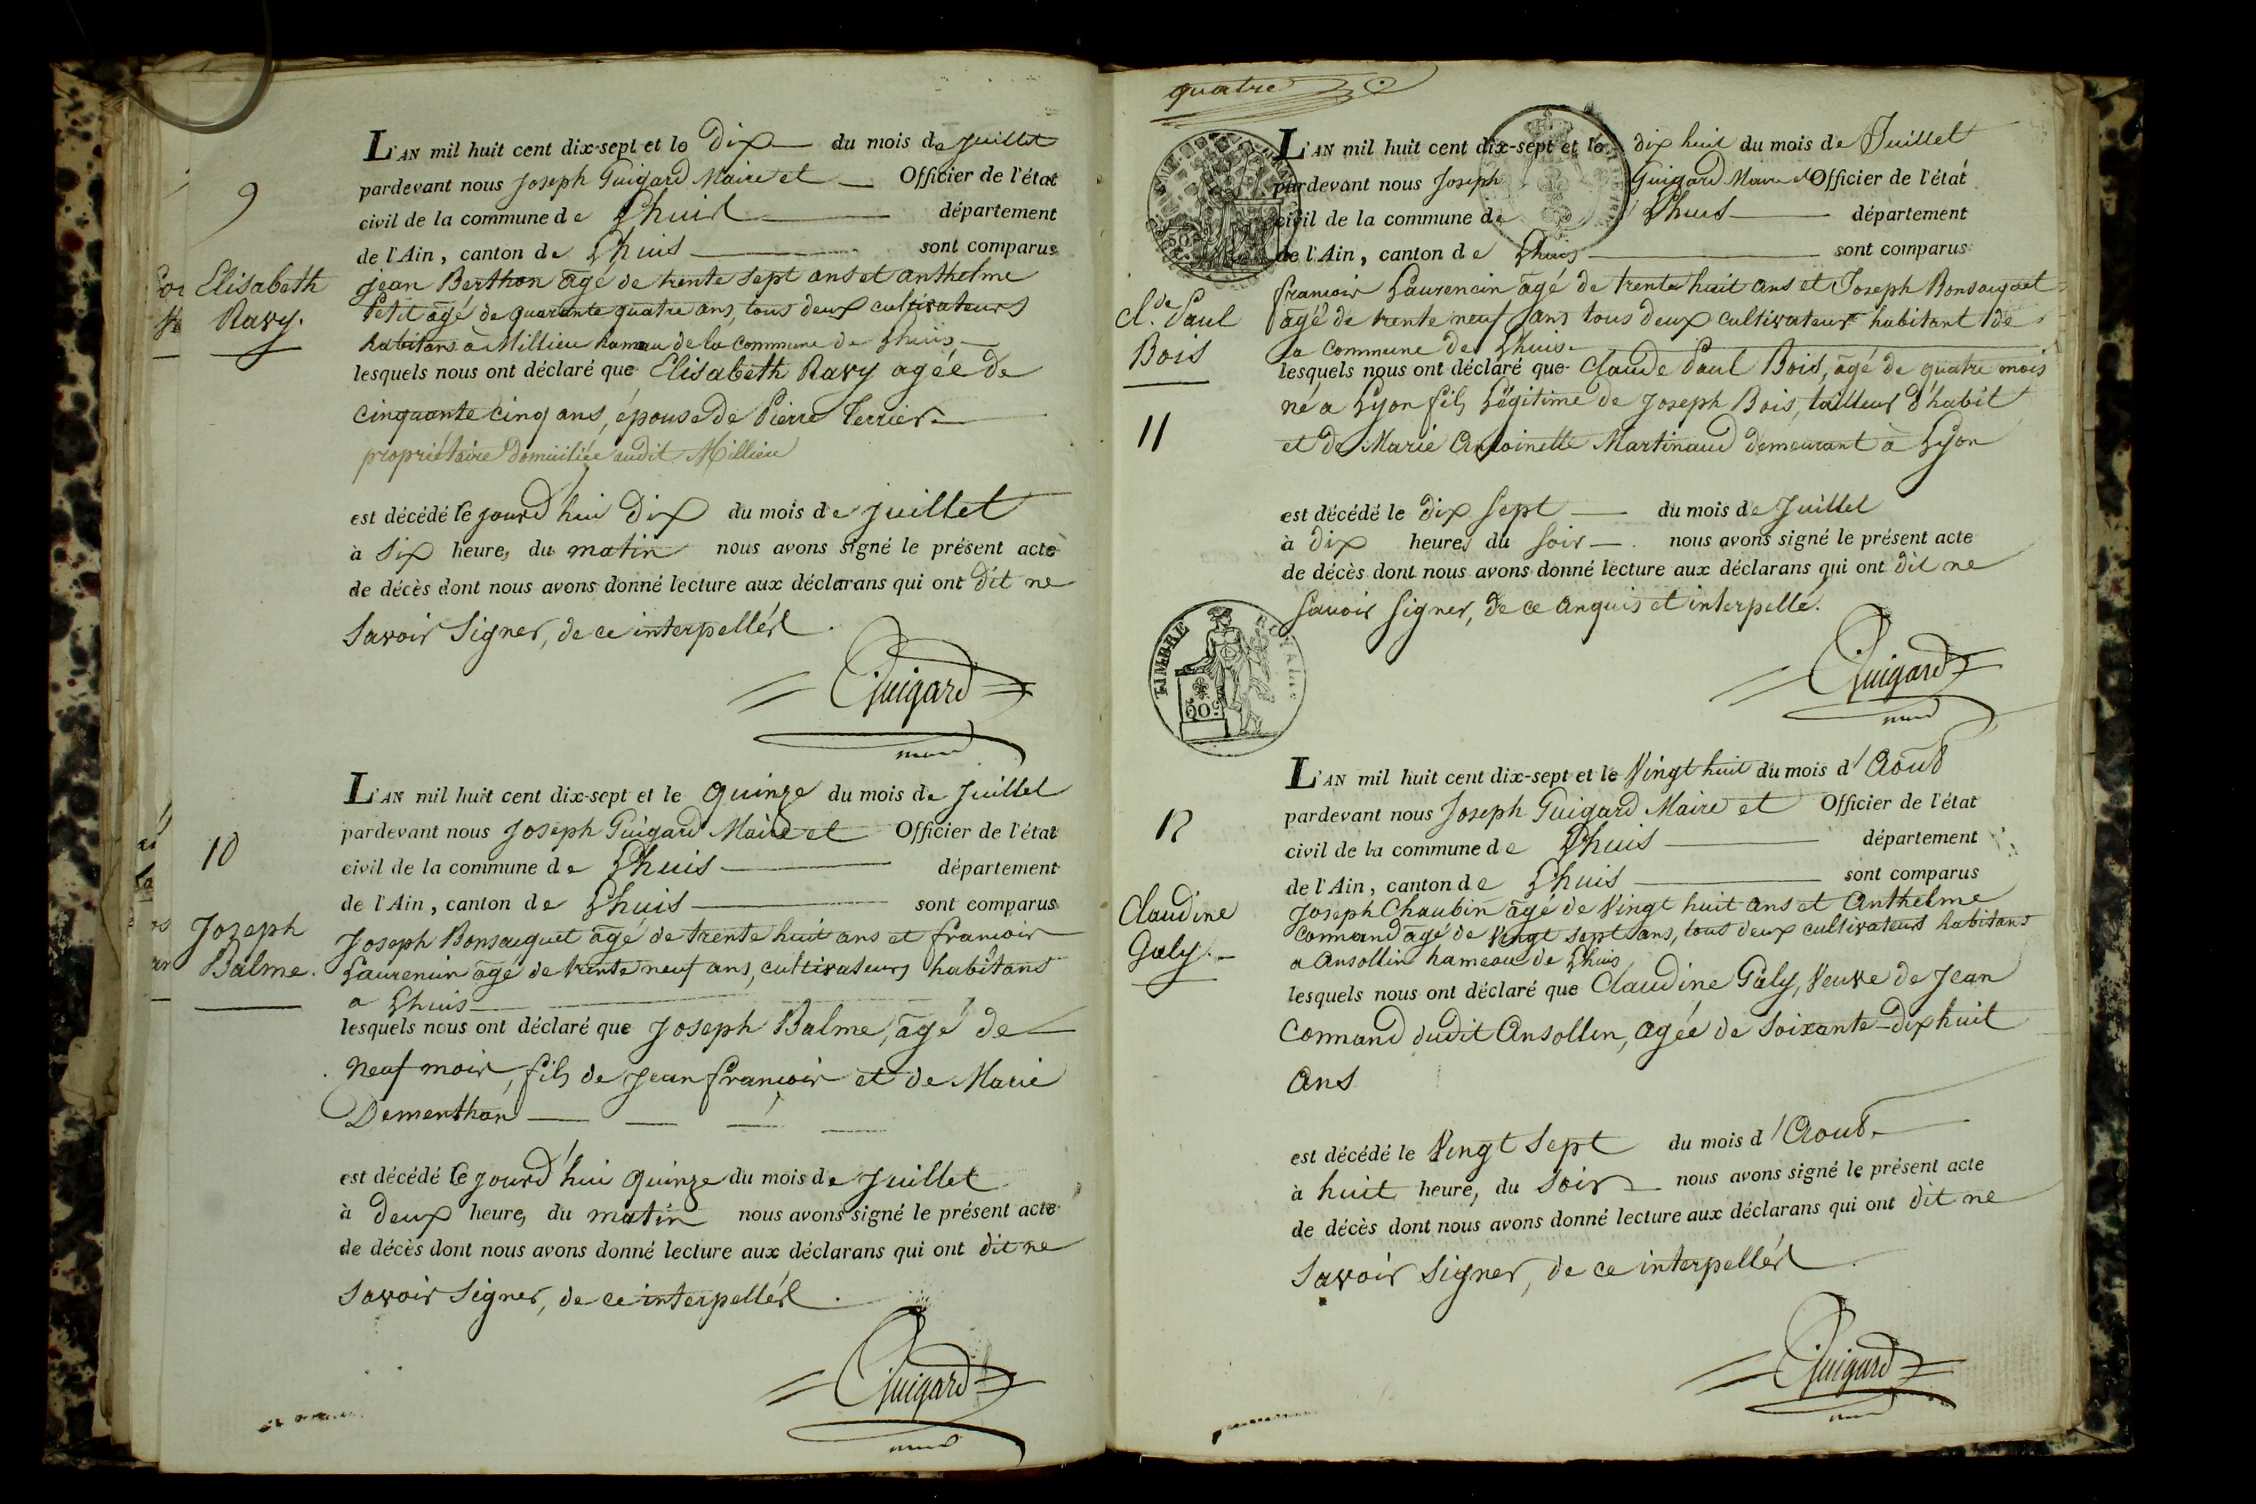 9
Elisabeth
Ravy.
L'AN mil huit cent dix-sept et le Dix du mois de juillet
pardevant nous Joseph Guigard Maire et Officier de l'état
civil de la commune de Lhuis département
de l'Ain, canton de Lhuis sont comparus
jean Berthon agé de trente sept ans et anthelme
Petit agé de quarante quatre ans, tous deux cultivateurs
habitans à Millieu hameau de la commune de Lhuis
lesquels nous ont déclaré que Elisabeth Ravy agée de
cinquante cinq ans, épouse de Pierre Terrier
propriétaire domiciliée audit Millieu
est décédé le jourd'hui Dix du mois de juillet
à Six heures du matin nous avons signé le présent acte
de décès dont nous avons donné lecture aux déclarans qui ont dit ne
Savoir Signer, de ce interpellés.
Guigard
10
Joseph
Balme.
L'AN mil huit cent dix-sept et le quinze du mois de Juillet
pardevant nous Joseph Guigard Maire et Officier de l'état
civil de la commune de Lhuis département
de l'Ain, canton de Lhuis sont comparus
Joseph Bonsacquet agé de trente huit ans et francois
Laurencin agé de trente neuf ans, cultivateurs habitans
a Lhuis
lesquels nous ont déclaré que Joseph Balme, agé de
neuf mois, fils de Jean francois et de Marie
Dementhon
est décédé le jourd'hui quinze du mois de Juillet
à deux heures du matin nous avons signé le présent acte
de décès dont nous avons donné lecture aux déclarans qui ont dit ne
Savoir Signer, de ce interpellés.
Guigard
quatre
Cl.de Paul
Bois
11
L'AN mil huit cent dix-sept et le dix huit du mois de Juillet
pardevant nous Joseph Guigard Maire et Officier de l'état
civil de la commune de Lhuis département
de l'Ain, canton de Lhuis sont comparus
francois Laurencin agé de trente huit ans et Joseph Bonsacquet
agé de trente neuf ans tous deux cultivateurs habitant de
la commune de Lhuis
lesquels nous ont déclaré que Claude Paul Bois, agé de quatre mois
né a Lyon fils Légitime de Joseph Bois, tailleur d'habit
et de Marie Antoinette Martinaud demeurant à Lyon
est décédé le dix sept du mois de Juillet
à dix heures du soir nous avons signé le présent acte
de décès dont nous avons donné lecture aux déclarans qui ont dit ne
Savoir signer, de ce anquis et interpellé.
TIMBRE ROYAL
50c
Guigard
12
Claudine
Galy.
L'AN mil huit cent dix-sept et le Vingt huit du mois d'Aout
pardevant nous Joseph Guigard Maire et Officier de l'état
civil de la commune de Lhuis département
de l'Ain, canton de Lhuis sont comparus
Joseph Chaubin agé de Vingt huit ans et Anthelme
Connand agé de Vingt sept ans, tous deux cultivateurs habitans
a Ansollin hameau de Lhuis
lesquels nous ont déclaré que Claudine Galy, Veuve de Jean
Connand dudit Ansollin, agée de Soixante-dix huit
ans
est décédé le Vingt Sept du mois d'Aout
à huit heures du Soir nous avons signé le présent acte
de décès dont nous avons donné lecture aux déclarans qui ont dit ne
Savoir Signer, de ce interpellés.
Guigard